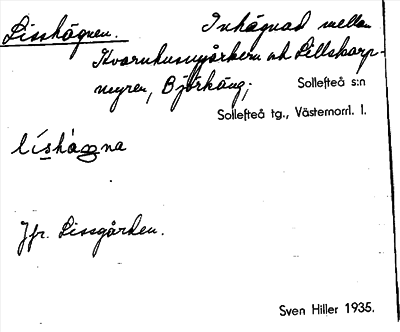 Lisshägnen. Inhägnad mellan
Kvarnhusmyrkern och Lillskarp-
myren, Björkäng; Sollefteå s:n
Sollefteå tg., Västernorrl. l.
líshàgna
Jfr. Lissgården.
Sven Hiller 1935.